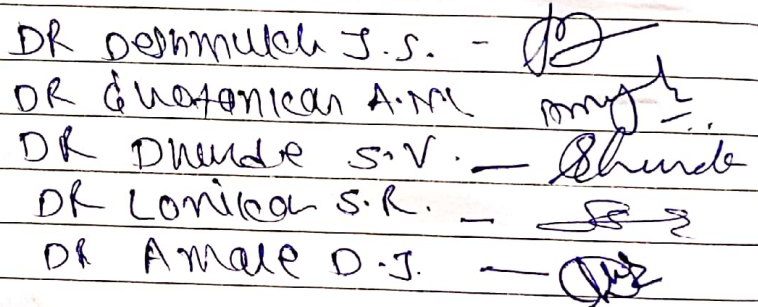 DR Deshmukh J.S. -
DR Ghatonkar A.M
DR Dhunde S.V. - Dhunde
DR Lonikar S.R. -
DR Amale D.J. -